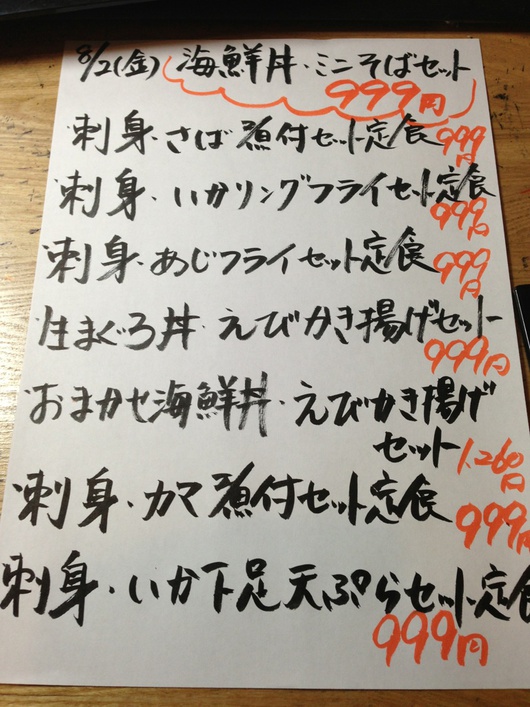 8/2(金) 海鮮丼・ミニそばセット
999円
刺身・さば煮付セット定食 999円
刺身・いかリングフライセット定食
999円
刺身・あじフライセット定食 999円
生まぐろ丼・えびかき揚げセット
999円
おまかせ海鮮丼・えびかき揚げ
セット 1,260円
刺身・カマ煮付セット定食 999円
刺身・いか下足天ぷらセット定食
999円